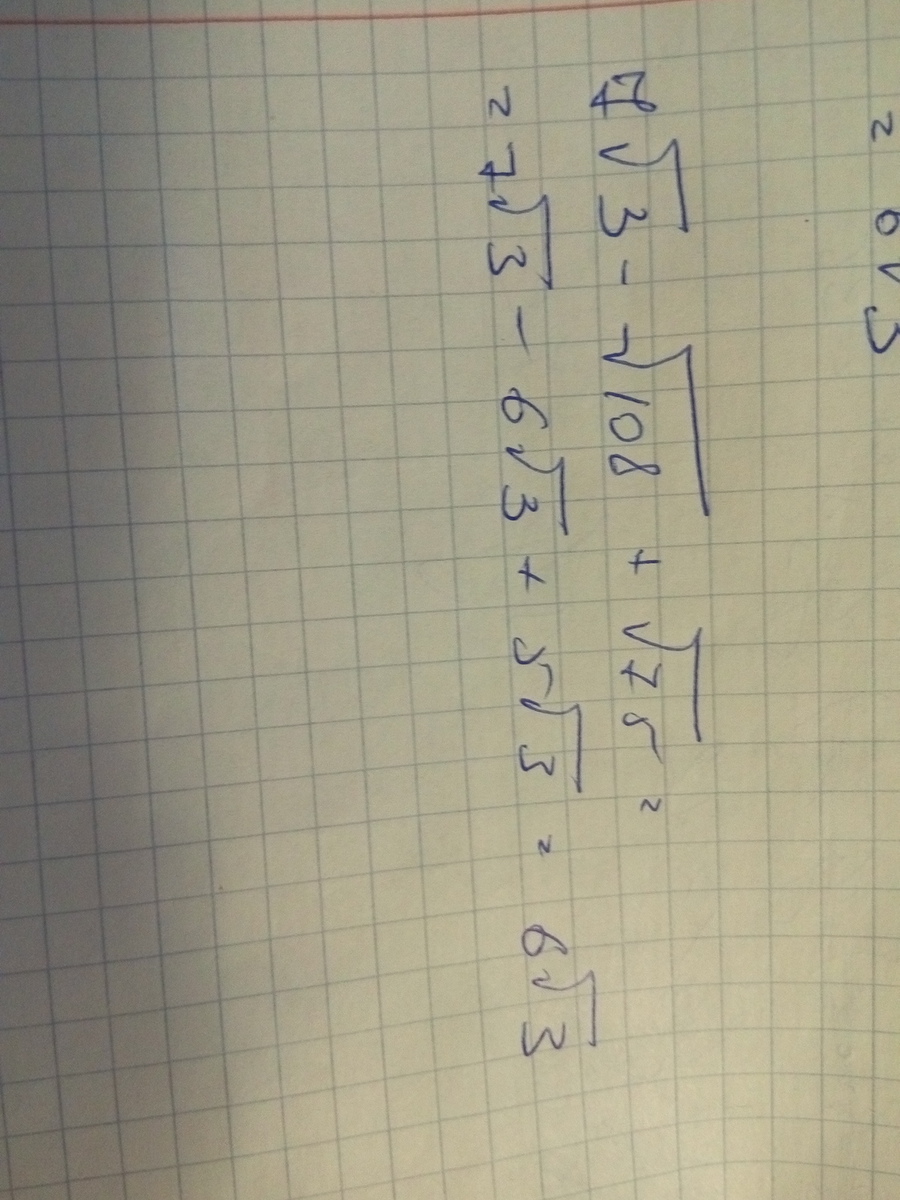 = 6√3
7√3 - √108 + √75 =
= 7√3 - 6√3 + 5√3 = 6√3